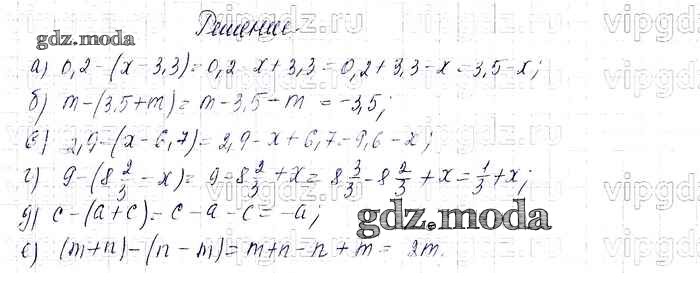 Решение.
gdz.moda
а) 0,2-(x-3,3)=0,2-x+3,3=0,2+3,3-x=3,5-x;
б) m-(3,5+m)=m-3,5-m=-3,5;
в) 2,9-(x-6,7)=2,9-x+6,7=9,6-x;
г) 9-(8 2/3 - x)=9-8 2/3 + x = 8 3/3 - 8 2/3 + x = 1/3 + x;
д) c-(a+c)=c-a-c=-a;
gdz.moda
е) (m+n)-(n-m)=m+n-n+m= 2m.
vipgdz.ru
vipgdz.ru
vipgdz.ru
vipgdz.ru